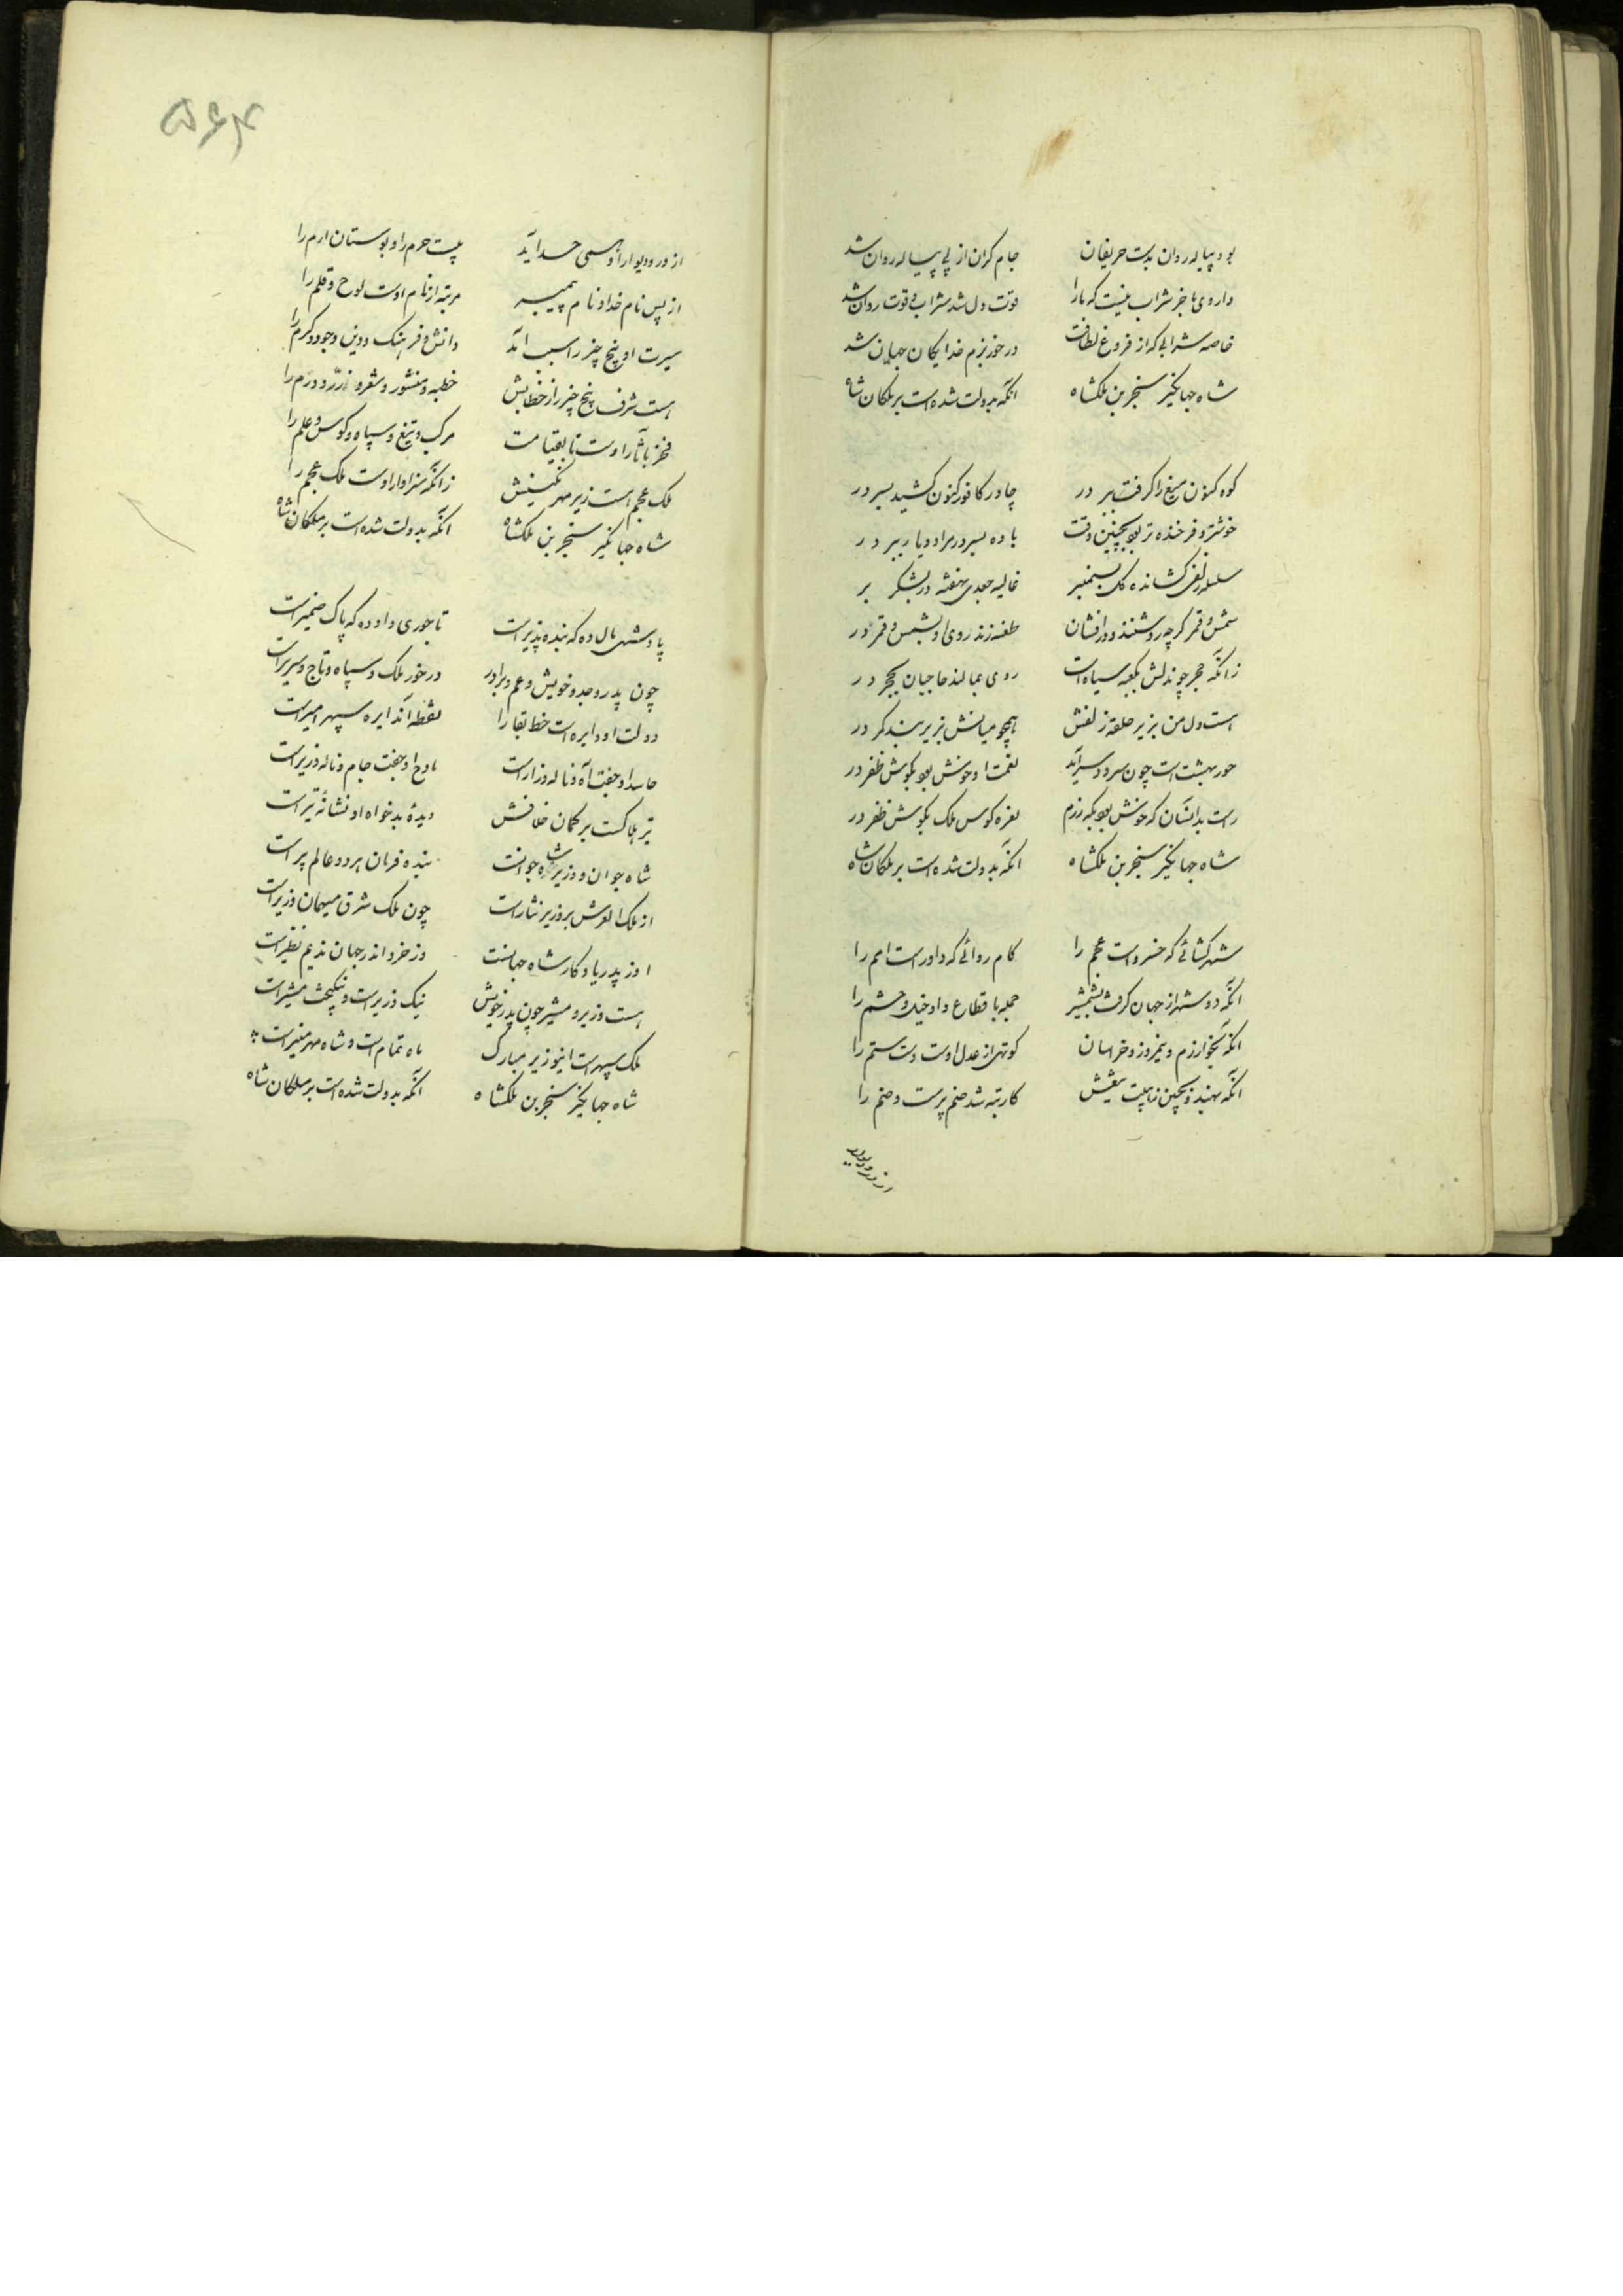 بود پیاله روان بدست حریفان جام گران از پی پیاله روان شد
داروی ما جز شراب نیست که ما را قوت دل شد شراب و قوت روان شد
خاصه شرابی که از فروغ لطافت در خور بزم خدایگان جهان شد
شاه جهانگیر سنجر بن ملکشاه آنکه بدولت شده است بر ملکان شاه
کوه کنون میغ را گرفت ببر در چادر کافورگون کشید بسر در
خوشتر و فرخنده تر بود بچنین وقت باده بسر در مراد و یار ببر در
سلسله زلفی کشانده گل بسمنبر غالیه جعدی نهفته در بشکر بر
شمس و قمر گرچه روشنند و درافشان طعنه زند روی او بشمس و قمر در
زانکه حجر چو ندلش بکعبه سیاه است روی بمالند حاجیان بحجر در
هست دل من بزیر حلقه زلفش همچو میانش بزیر بند کمر در
حور بهشت است چون سرود سراید نغمت او خوش بود بگوش ظفر در
راست بدانسان که خوش بود بگه رزم نعره کوس ملک بگوش ظفر در
شاه جهانگیر سنجر بن ملکشاه آنکه بدولت شده است بر ملکان شاه
شهرگشائی که خسرو است عجم را کام روائی که داور است امم را
آنکه دو شهر از جهان گرفت بشمشیر جمله باقطاع داد خیل و حشم را
آنکه بخوارزم و نیمروز و خراسان کوتهی از عدل اوست دست ستم را
آنکه بهند و بچین ز هیبت تیغش کار تبه شد صنم پرست و صنم را
از در و دیوار
۵۶۴
از در و دیوار او همی حسد آید بیت حرم را و بوستان ارم را
از پس نام خدا و نام پیمبر مرتبه از نام اوست لوح و قلم را
سیرت او پنج چیز را سبب آمد دانش و فرهنگ و دین و جود و کرم را
هست شرف پنج چیز را ز خطابش خطبه و منشور و شعر و زر و درم را
فخر بآثار اوست تا بقیامت مرکب و تیغ و سپاه و کوس و علم را
ملک عجم هست زیر مهر نگینش زانکه سزاوار اوست ملک عجم را
شاه جهانگیر سنجر بن ملکشاه آنکه بدولت شده است بر ملکان شاه
پادشهی مال ده که بنده پذیر است تاجوری داد ده که پاک ضمیر است
چون پدر و جد و خویش و عم و برادر در خور ملک و سپاه و تاج و سریر است
دولت او دایره است خط بقا را نقطه آن دایره سپهر امیر است
حاسد او جفت آه و ناله و زار است مادح او جفت جام و ناله و زیر است
تیر هلاکست بر کمان خلافش دیدهٔ بدخواه او نشانهٔ تیر است
شاه جوان و وزیر شاه جوانست بنده فرمان هر دو عالم پیر است
از ملک العرش بر وزیر نثار است چون ملک شرق میهمان وزیر است
او ز پدر یادگار شاه جهانست وز خرد اندر جهان ندیم نظیر است
هست وزیر و مشیر چون پدر خویش نیک وزیر است و نیکبخت مشیر است
ملک سپهر است این وزیر مبارک ماه تمام است و شاه مهر منیر است
شاه جهانگیر سنجر بن ملکشاه آنکه بدولت شده است بر ملکان شاه